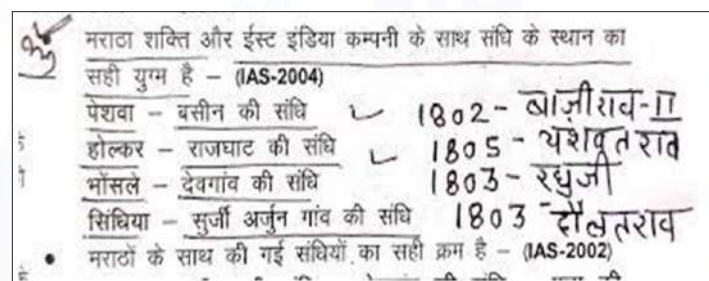 मराठा शक्ति और ईस्ट इंडिया कम्पनी के साथ संधि के स्थान का
सही युग्म है – (IAS-2004)
पेशवा – बसीन की संधि 1802- बाज़ीराव-II
होल्कर – राजघाट की संधि 1805 - यशवंतराव
भोंसले – देवगांव की संधि 1803- रघुजी
सिंधिया – सुर्जी अर्जुन गांव की संधि 1803 - दौलतराव
• मराठों के साथ की गई संधियों का सही क्रम है – (IAS-2002)